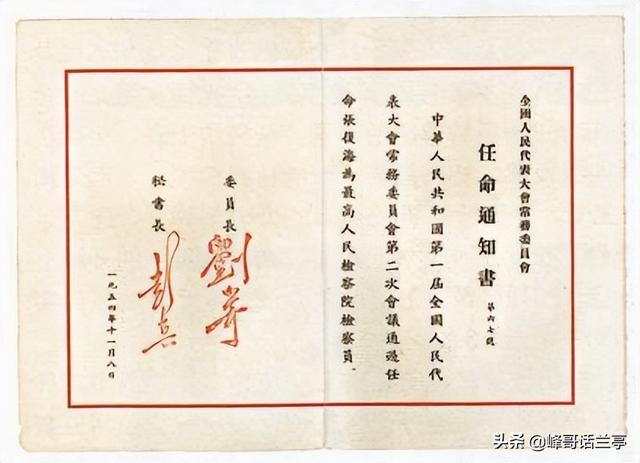 全國人民代表大會常務委員會
任命通知書
第六七號
中華人民共和國第一屆全國人民代
表大會常務委員會第二次會議通過任
命張復海為最高人民檢察院檢察員
委員長
劉少奇
秘書長
彭真
一九五四年十一月八日
头条 @峰哥话兰亭